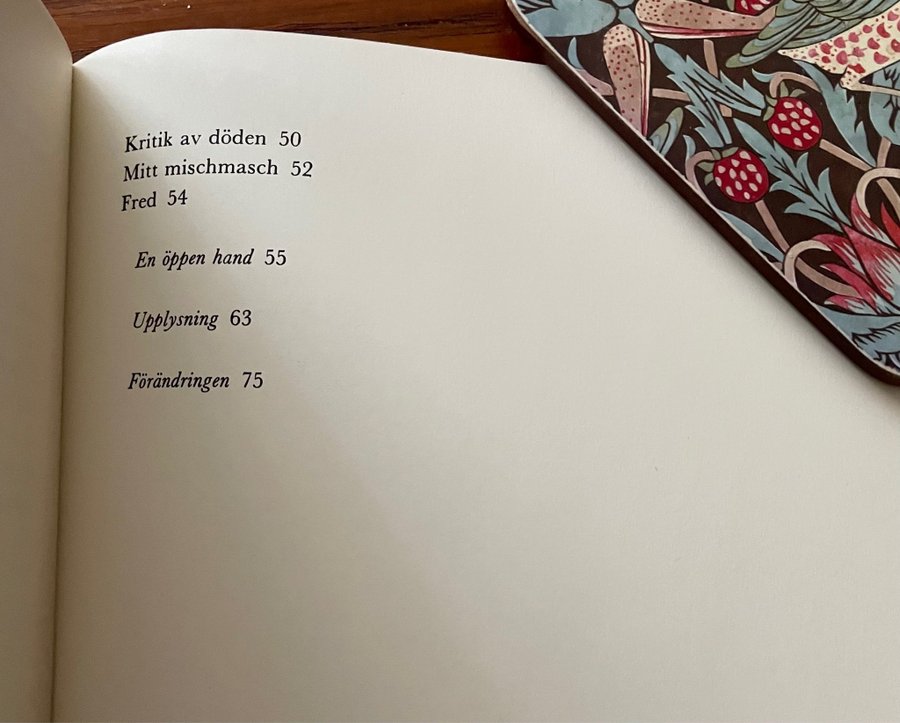 Kritik av döden 50
Mitt mischmasch 52
Fred 54
En öppen hand 55
Upplysning 63
Förändringen 75